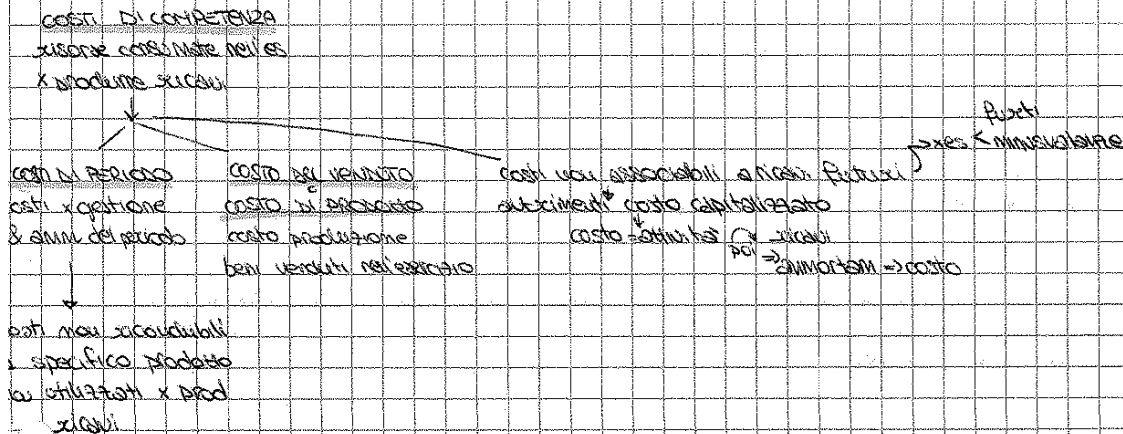 COSTI DI COMPETENZA
risorse consumate nell'es
x produrre ricavi
COSTI DI PERIODO
costi x gestione
& amm del periodo
costi non riconducibili
specifico prodotto
utilizzati x prod
ricavi
COSTO DEL VENDUTO
COSTO DI PRODOTTO
costo produzione
beni venduti nell'esercizio
costi non associabili a ricavi futuri
altrimenti costo capitalizzato
costo = attività poi ricavi
=> ammortam => costo
x es < furti
minusvalenze